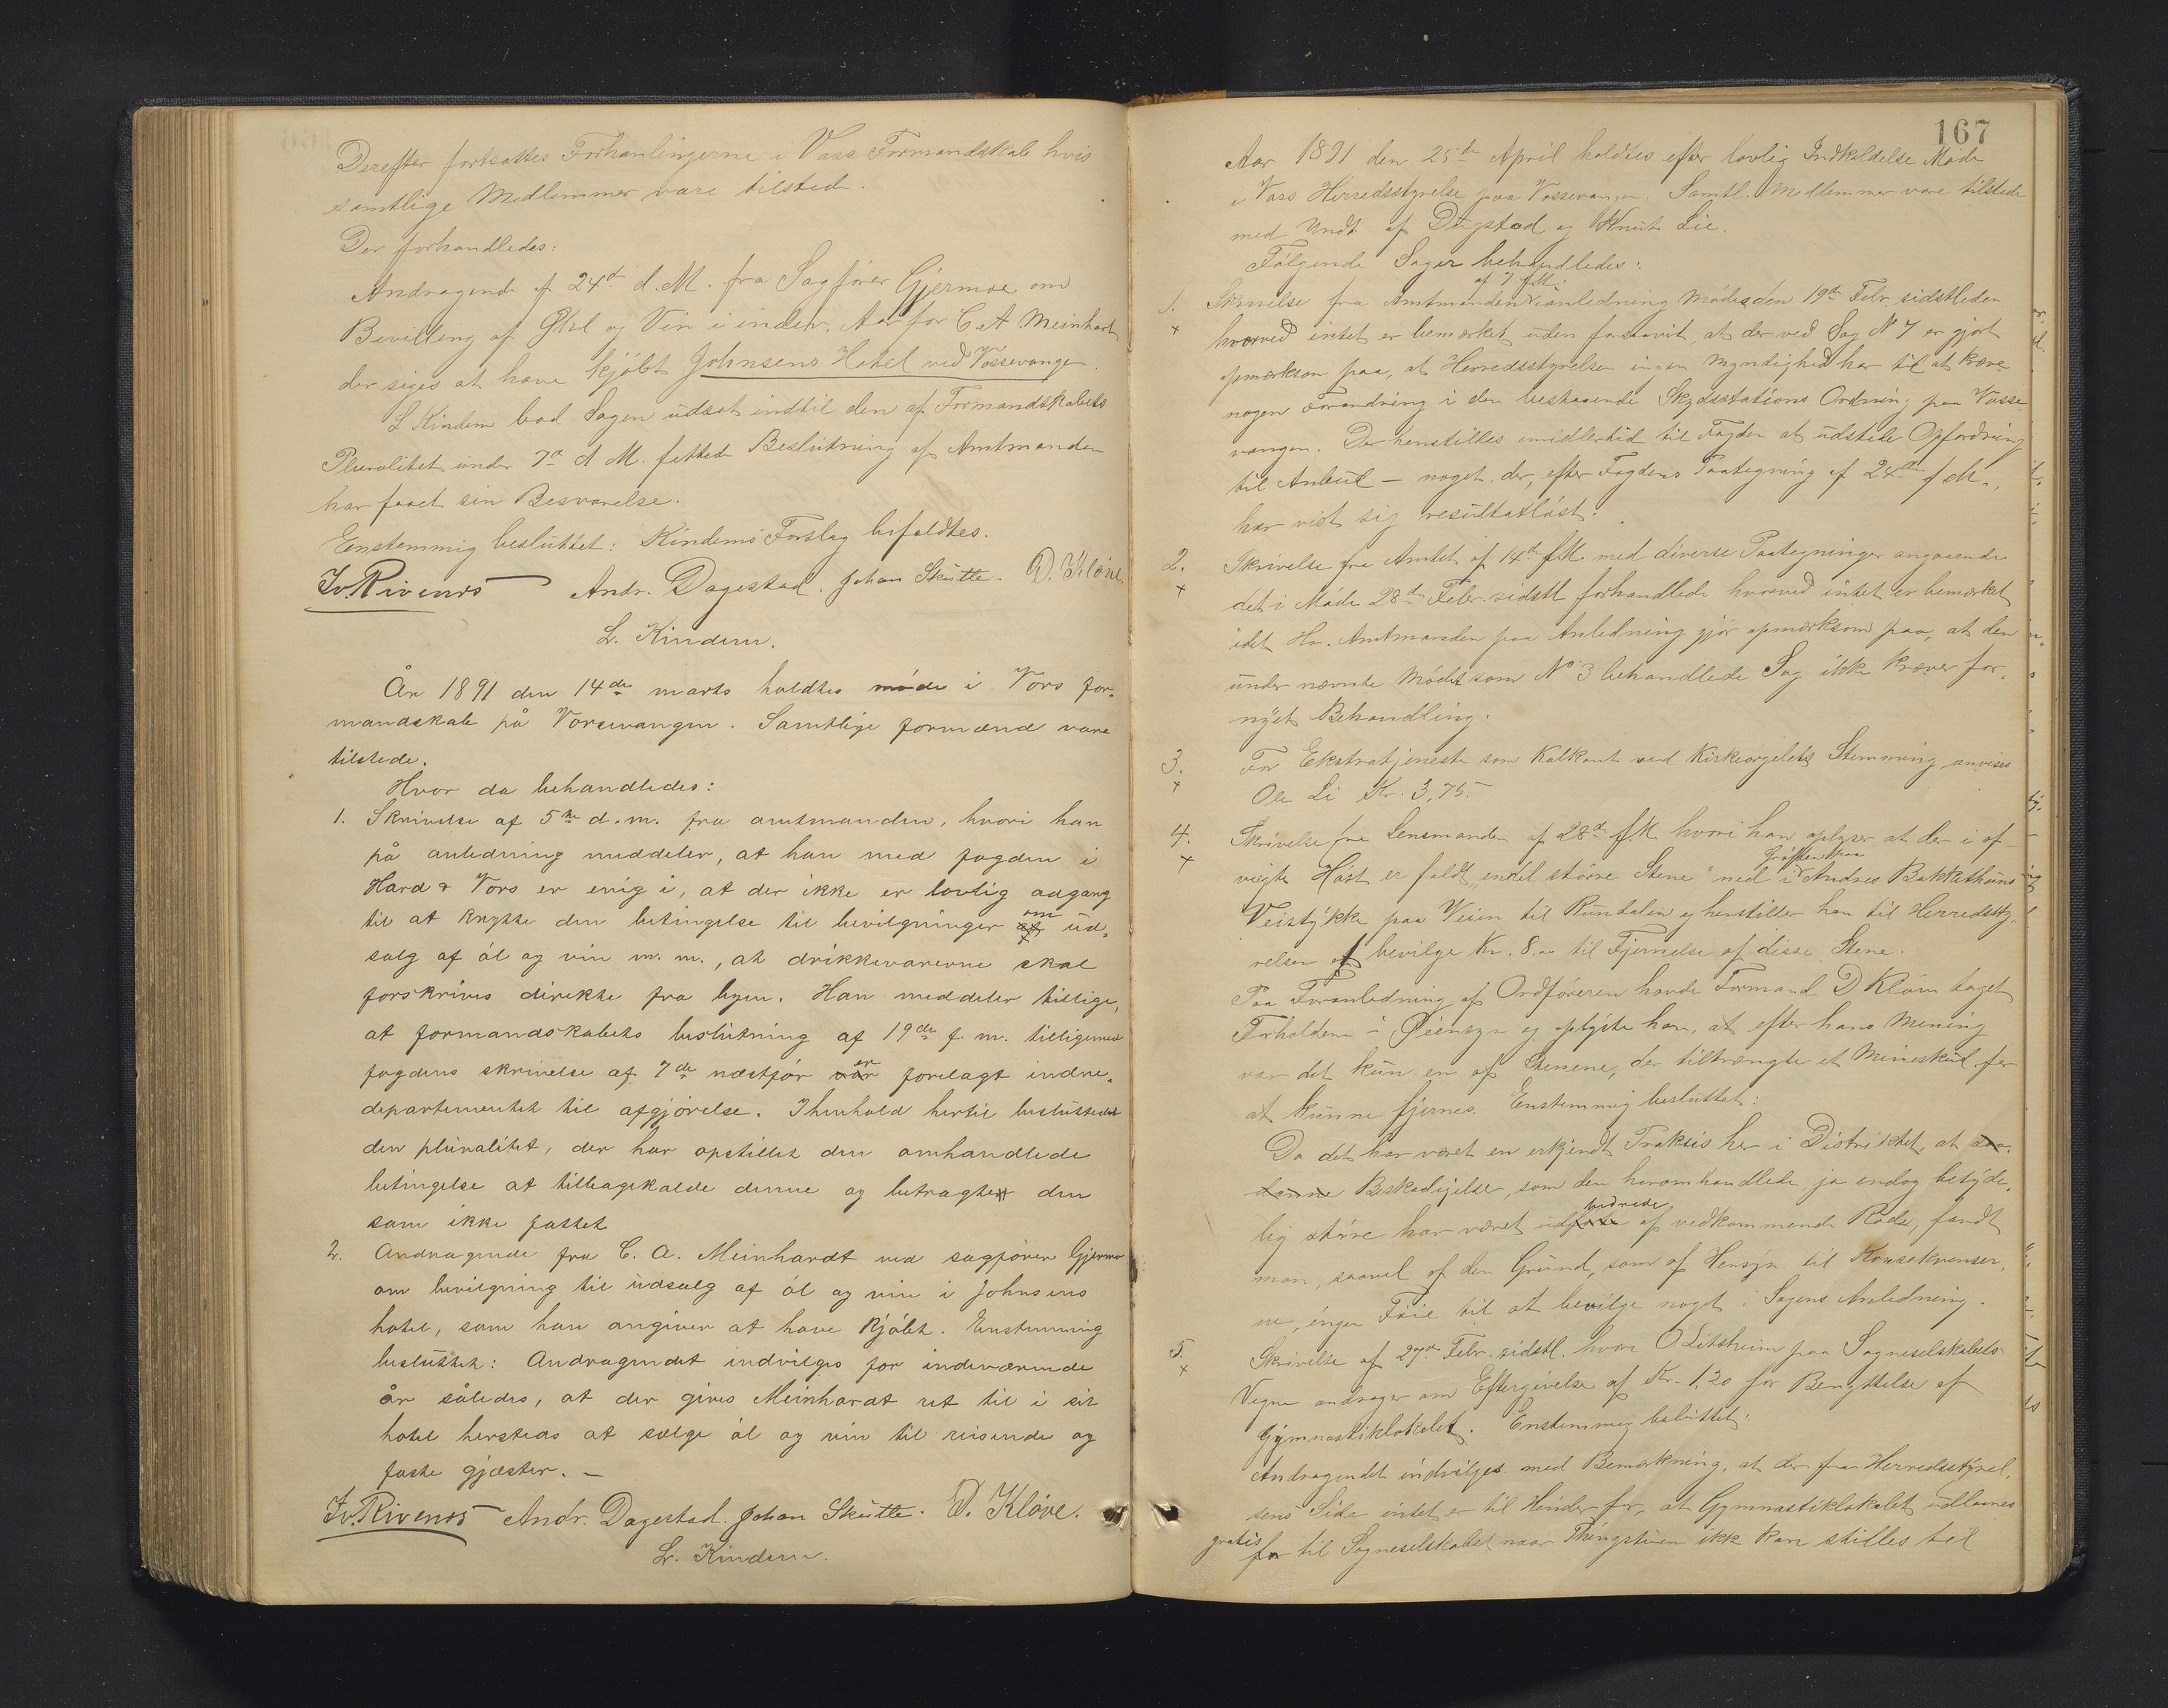 Derefter fortsattes Forhanlingerne i Voss Formandskab hvis
samtlige Medlemmer vare tilstede.
Der forhandledes:
Andragende af 24de d.M. fra Sagfører Gjermoe om
Bevilling af Øhl og Vin i indev. Aar for C A Meinhart
der siges at have kjøbt Johnsens Hotel ved Vossevangen.
L Kindem bad Sagen udsat indtil den af Formandskabets
Pluralitet under 7de d M. fattede Beslutning af Amtmanden
har faaet sin Besvarelse.
Enstemmig besluttet: Kindems Forslag bifaldtes.
Iv. Rivenes Andr. Dagestad. Johan Skutle. D. Kløve
L. Kindem.
År 1891 den 14de marts holdtes møde i Vors for-
mandskab på Vorsevangen. Samtlige formænd vare
tilstede.
Hvor da behandledes:
1. Skrivelse af 5te d.m. fra amtmanden, hvori han
på anledning meddeler, at han med fogden i
Hard & Vors er enig i, at der ikke er lovlig adgang
til at knytte den betingelse til bevilgninger om ud-
salg af øl og vin m.m., at drikkevarerne skal
forskrives direkte fra byen. Han meddeler tillige,
at formandskabets beslutning af 19de f.m. tilligemed
fogdens skrivelse af 7de næstfør er forelagt indre-
departementet til afgjørelse. I henhold hertil besluttede
den pluralitet, der har opstillet den omhandlede
betingelse at tilbagekalde denne og betragte den
som ikke fattet
2. Andragende fra C. A. Meinhardt ved sagfører Gjermo
om bevilgning til udsalg af øl og vin i Johnsens
hotel, som han angiver at have kjøbt. Enstemmig
besluttet: Andragendet indvilges for indeværende
år således, at der gives Meinhardt ret til i sit
hotel hersteds at sælge øl og vin til reisende og
faste gjæster. –
Iv. Rivenes Andr. Dagestad. Johan Skutle. D. Kløve.
L. Kindem.
167
Aar 1891 den 25de April holdtes efter lovlig Indkaldelse Møde
i Voss Herredsstyrelse paa Vossevangen. Samtl. Medlemmer vare tilstede
med Undt. af Dugstad og Knut Lie.
Følgende Sager behandledes:
1. Skrivelse fra Amtmanden af 7 f.M. i anledning Mødes den 19de Febr. sidstleden
hvorved intet er bemærket uden forsaavidt, at der ved Sag No 7 er gjort
opmærksom paa, at Herredsstyrelsen ingen Myndighed har til at kræve
nogen Forandring i den bestaaende Skydsstations Ordning paa Vosse
vangen. Der henstilles imidlertid til Fogden at udstede Opfordring
til Anbud – noget, der, efter Fogdens Paategning af 24de f.M.,
har vist sig resultatløst.
2. Skrivelse fra Amtet af 14de f.M. med diverse Paategninger angaaende
det i Møde 28de Febr. sidstl forhandlede hvorved intet er bemærket
idet Hr. Amtmanden paa Anledning gjør opmærksom paa, at den
under nævnte Møde som No 3 behandlede Sag ikke kræver for-
nyet Behandling.
3. For Ekstratjeneste som Kalkant ved Kirkeorgelets Stemming anvises
Ole Li Kr. 3,75.
4. Skrivelse fra Lensmanden af 28de f.M. hvori han oplyser at der i af-
vigte Høst er faldt "endel større Stene" ned i Grøften paa Andres Bakkethuns
Veistykke paa Veien til Rundalen og henstiller han til Herredssty-
relsen at bevilge Kr. 8.00 til Fjernelse af disse Stene.
Paa Foranledning af Ordføreren havde Formand D Kløve taget
Forholdene i Øiensyn og oplyste han, at efter hans Mening
var det kun en af Stenene, der tiltrængte et Mineskud for
at kunne fjernes. Enstemmig besluttet:
Da det har været en erkjendt Praksis her i Distriktet, at
Beskadigelser, som den heromhandlede, ja endog betyde-
lig større har været udbedrede af vedkommende Rode, fandt
man, saavel af den Grund, som af Hensyn til Konsekvenser-
ne, ingen Føie til at bevilge noget i Sagens Anledning.
5. Skrivelse af 27de Febr. sidstl. hvori O Litsheim paa Sogneselskabets
Vegne andrager om Eftergivelse af Kr. 1,20 for Benyttelse af
Gymnastiklokalet. Enstemmig besluttet:
Andragendet indvilges med Bemærkning, at der fra Herredsstyrel-
sens Side intet er til Hinder for, at Gymnastiklokalet udlaanes
gratis til Sogneselskabet naar Thingstuen ikke kan stilles til